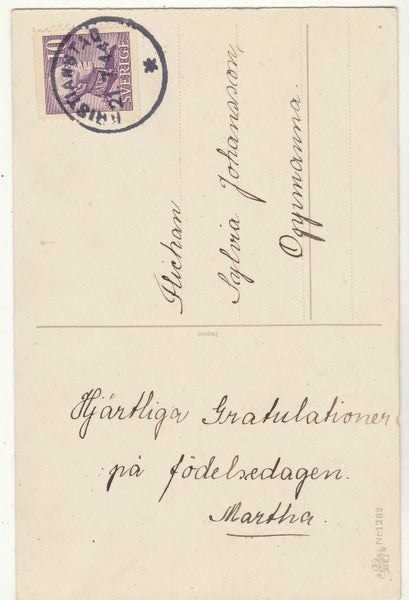 KRISTIANSTAD
21
SVERIGE
10
Flickan
Sylvia Johansson,
Oppmanna.
Import
Hjärtliga Gratulationer
på födelsedagen.
Martha.
Nr. 1262